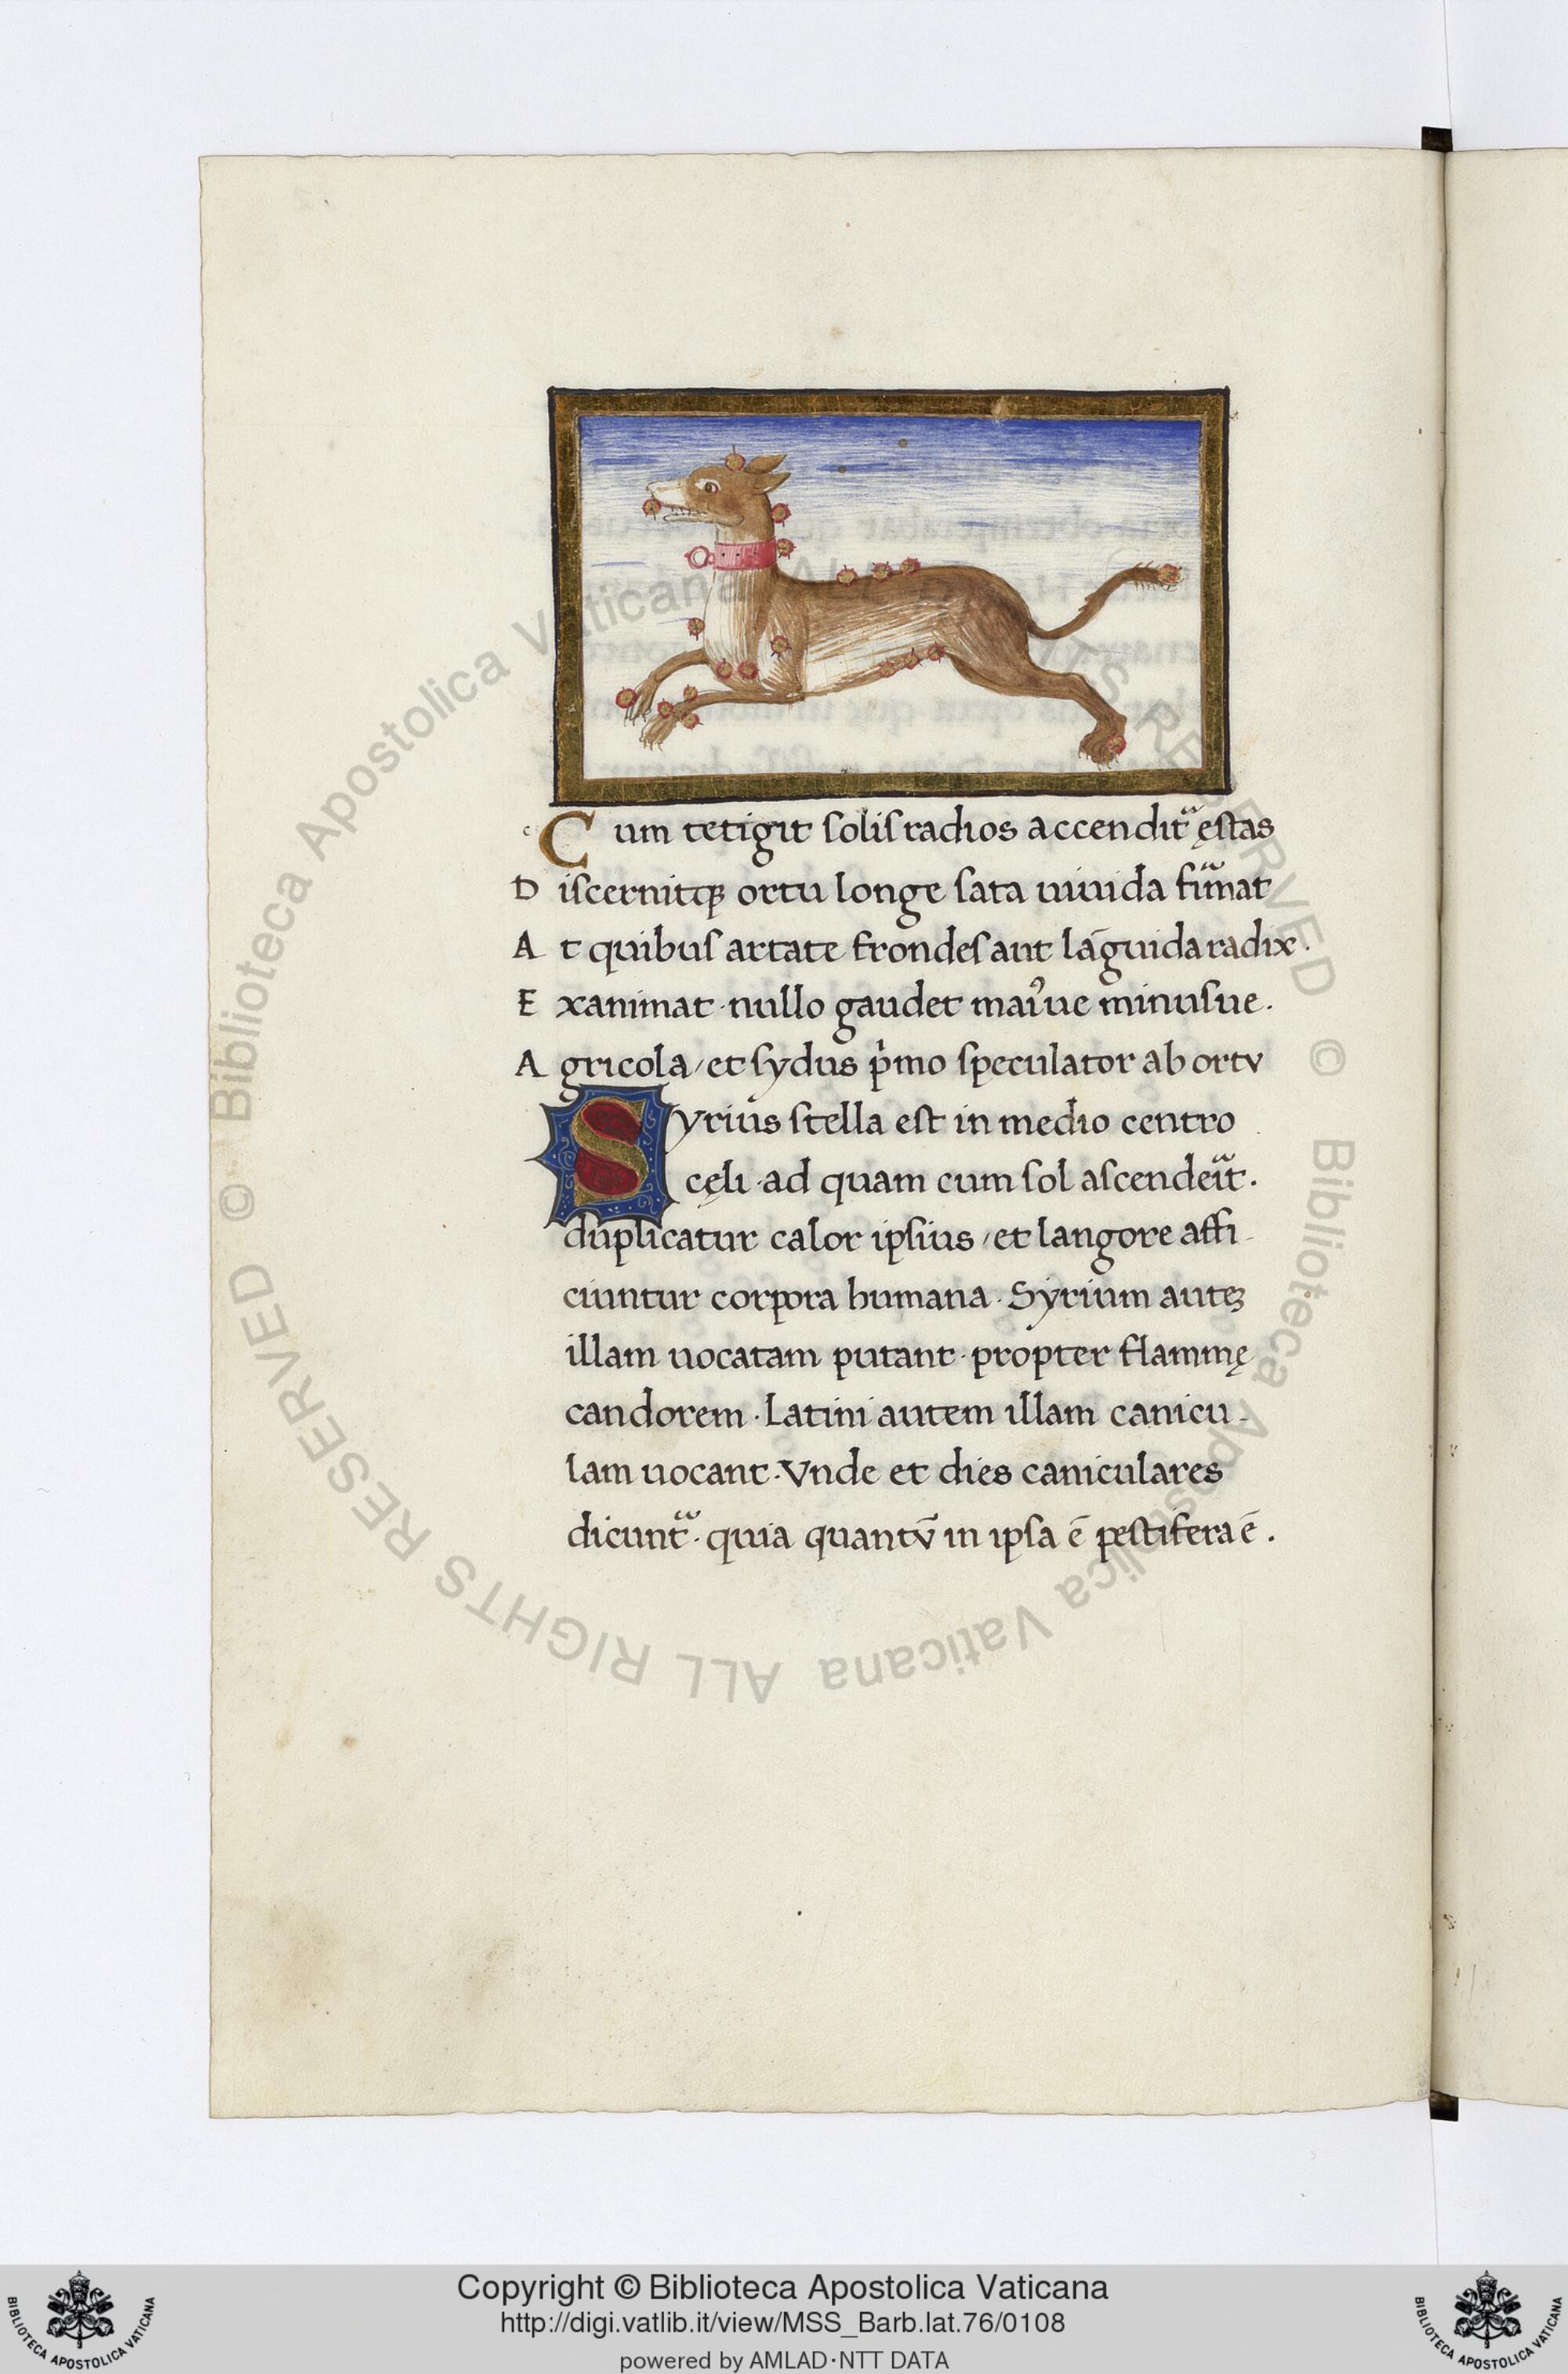 Cum tetigit solis radios accenditᷓ ęstas
Discernitqꝫ ortu longe sata uiuida firᷓmat
At quibus artate frondes aut lāguida radix.
Exanimat · nullo gaudet maiꝰue minusue.
Agricola / et sydus pⁱmo speculator ab ortv
Syrius stella est in medio centro
cęli · ad quam cum sol ascendeitᷓ.
duplicatur calor ipsius / et langore affi-
ciuntur corpora humana · Syrium auteꝫ
illam uocatam putant · propter flammę
candorem · Latini autem illam canicu-
lam uocant · Vnde et dies caniculares
dicuntᷓ · quia quantv̄ in ipsa ē pestifera ē.
© Biblioteca Apostolica Vaticana ALL RIGHTS RESERVED
© Biblioteca Apostolica Vaticana ALL RIGHTS RESERVED
Copyright © Biblioteca Apostolica Vaticana
http://digi.vatlib.it/view/MSS_Barb.lat.76/0108
powered by AMLAD·NTT DATA
BIBLIOTECA APOSTOLICA VATICANA
BIBLIOTECA APOSTOLICA VATICANA